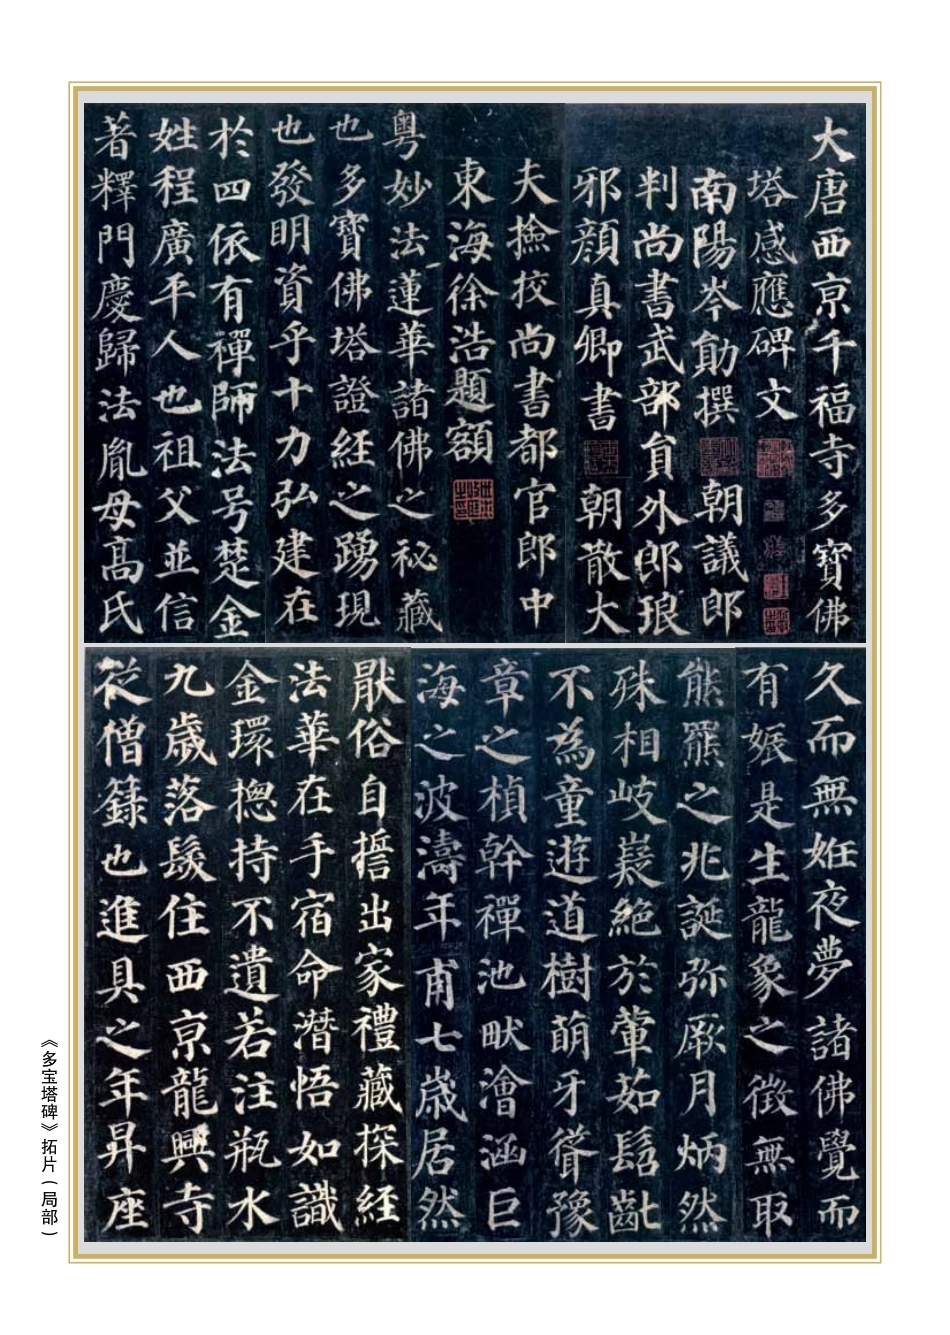 大唐西京千福寺多寶佛
塔感應碑文
南陽岑勛撰 朝議郎
判尚書武部員外郎琅
邪顏真卿書 朝散大
夫撿挍尚書都官郎中
東海徐浩題額
粵妙法蓮華諸佛之秘藏
也多寶佛塔證経之踴現
也發明資乎十力弘建在
於四依有禪師法号楚金
姓程廣平人也祖父並信
著釋門慶歸法胤母髙氏
久而無姙夜夢諸佛覺而
有娠是生龍象之徵無取
熊羆之兆誕弥厥月炳然
殊相岐嶷絕於葷茹髫齔
不為童遊道樹萌牙聳豫
章之楨幹禪池畎澮涵巨
海之波濤年甫七歳居然
猒俗自誓出家禮藏探経
法華在手宿命潜悟如識
金環揔持不遺若注瓶水
九歳落髮住西京龍興寺
從僧籙也進具之年昇座
《多宝塔碑》拓片(局部)